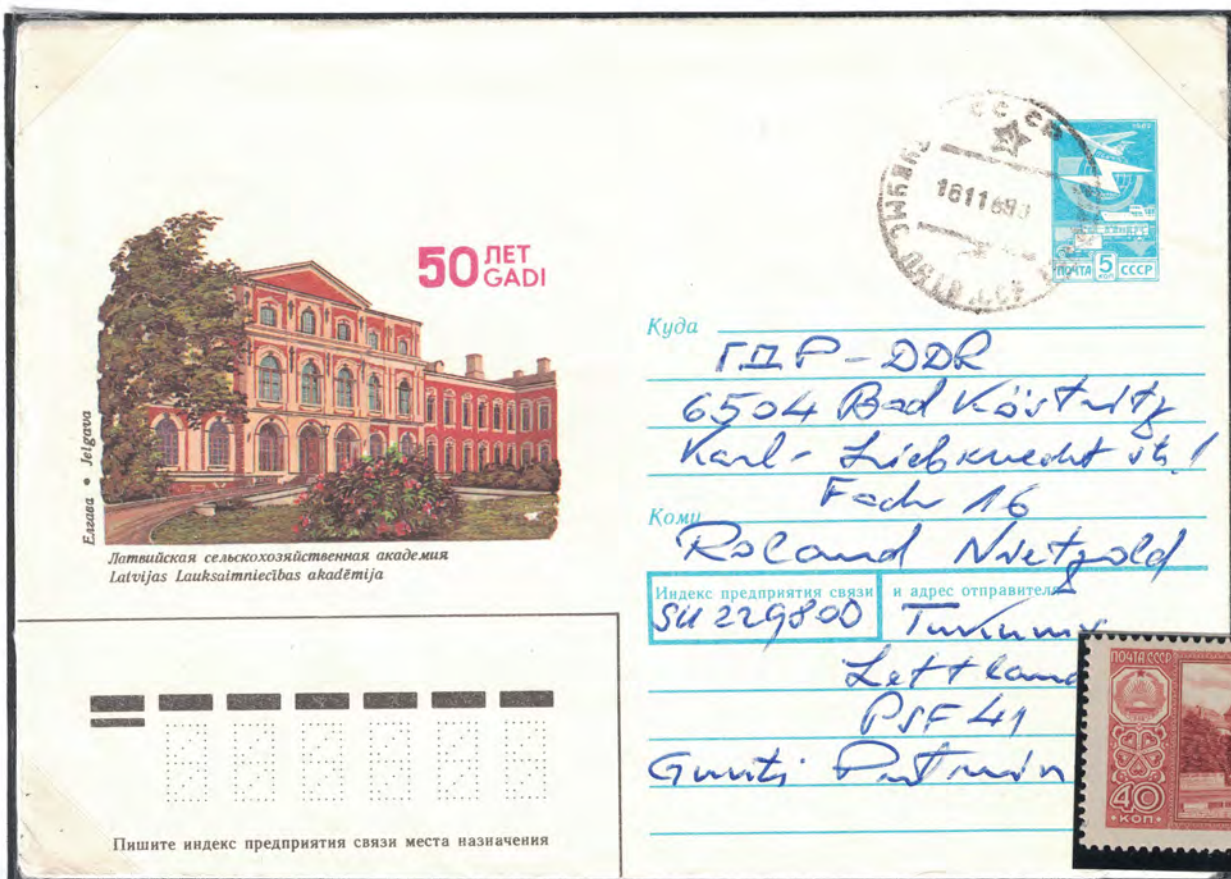 50 ЛЕТ
GADI
Елгава • Jelgava
Латвийская сельскохозяйственная академия
Latvijas Lauksaimniecības akadēmija
1982
ПОЧТА 5 КОП СССР
Куда
ГДР-DDR
6504 Bad Köstritz
Karl-Liebknecht str.
Fach 16
Кому
Roland Nietzold
Индекс предприятия связи и адрес отправителя
SU 229800
Lettland
PSF 41
Пишите индекс предприятия связи места назначения
ПОЧТА СССР
40
КОП.